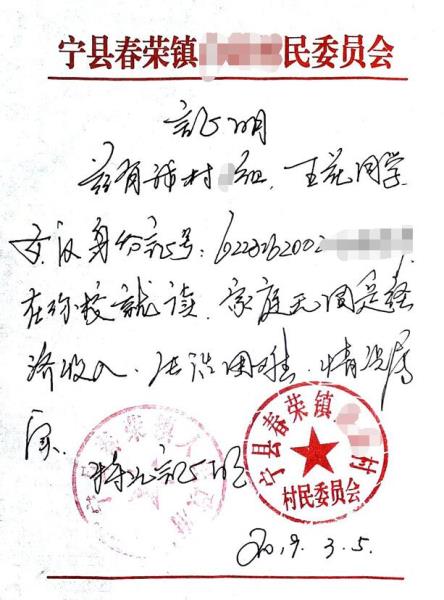 宁县春荣镇民委员会
证明
兹有我村组、王同学
女汉身份证号：6228262002
在你校就读、家庭无固定经
济收入、生活困难、情况属
实。
特此证明
宁县春荣镇村
村民委员会
2019.3.5.